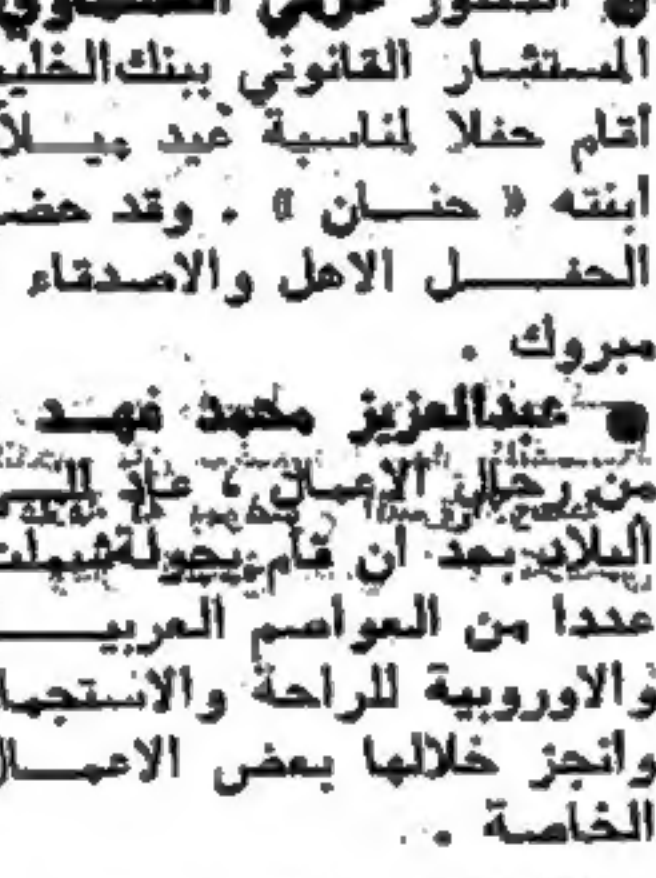 ● الدكتور علي
المستشار القانوني ببنك الخليج
اقام حفلا لمناسبة عيد ميلا
ابنته « حنان » . وقد حضـ
الحفـــل الاهل والاصدقاء
مبروك .
● عبدالعزيز محمد فهــد
من رجال الاعمال ، عاد الــى
البلاد بعد ان قام بجولة شملت
عددا من العواصم العربيـــ
والاوروبية للراحة والاستجما
وانجز خلالها بعض الاعمــال
الخاصة .